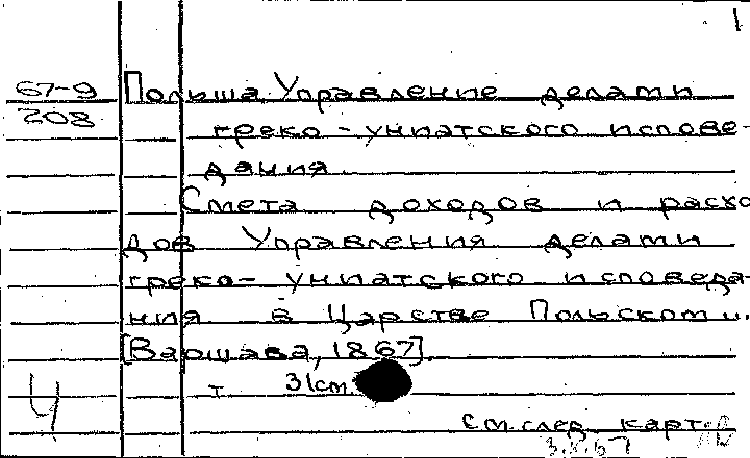 1
67-9 Польша. Управление делами
208 греко-униатского испове-
дания.
Смета доходов и расхо
дов Управления делами
греко-униатского исповеда-
ния в Царстве Польском.
[Варшава, 1867].
т 31см.
Ч
см. след. карт.
3.X.67